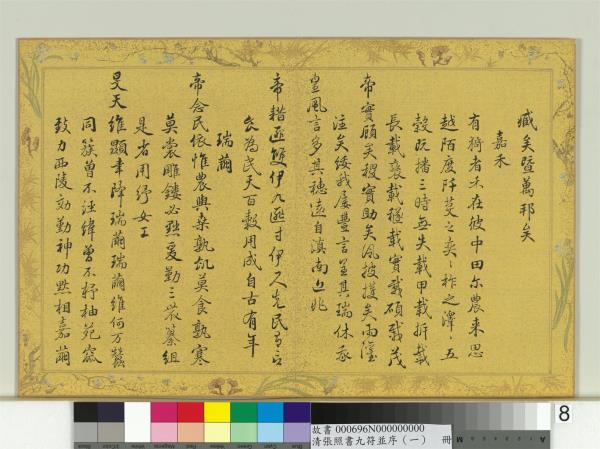 臧矣暨萬邦矣
嘉禾
有椅者禾在彼中田尔農来思
越陌度阡芟之柞之澤澤五
穀既播三時無失載甲載拆載
長載褎載穟載實載碩載茂
帝實顧矣稷實助矣風披護矣雨
注矣綏我屢豐言呈其瑞休承
皇風言多其穗遠自滇南
帝耤
民天百穀用成自古有年
瑞繭
帝念民依惟農與桑孰飢莫食孰寒
莫裳雕鏤必黜爰勤三農纂組
是省用紓女工
旻天維顯聿降瑞繭瑞繭維何万蠶
同簇曾不經緯曾不杼柚苑窳
致力西陵効勤神功默相嘉繭
故書 000696N000000000
清張照書九符並序（一） 冊
8